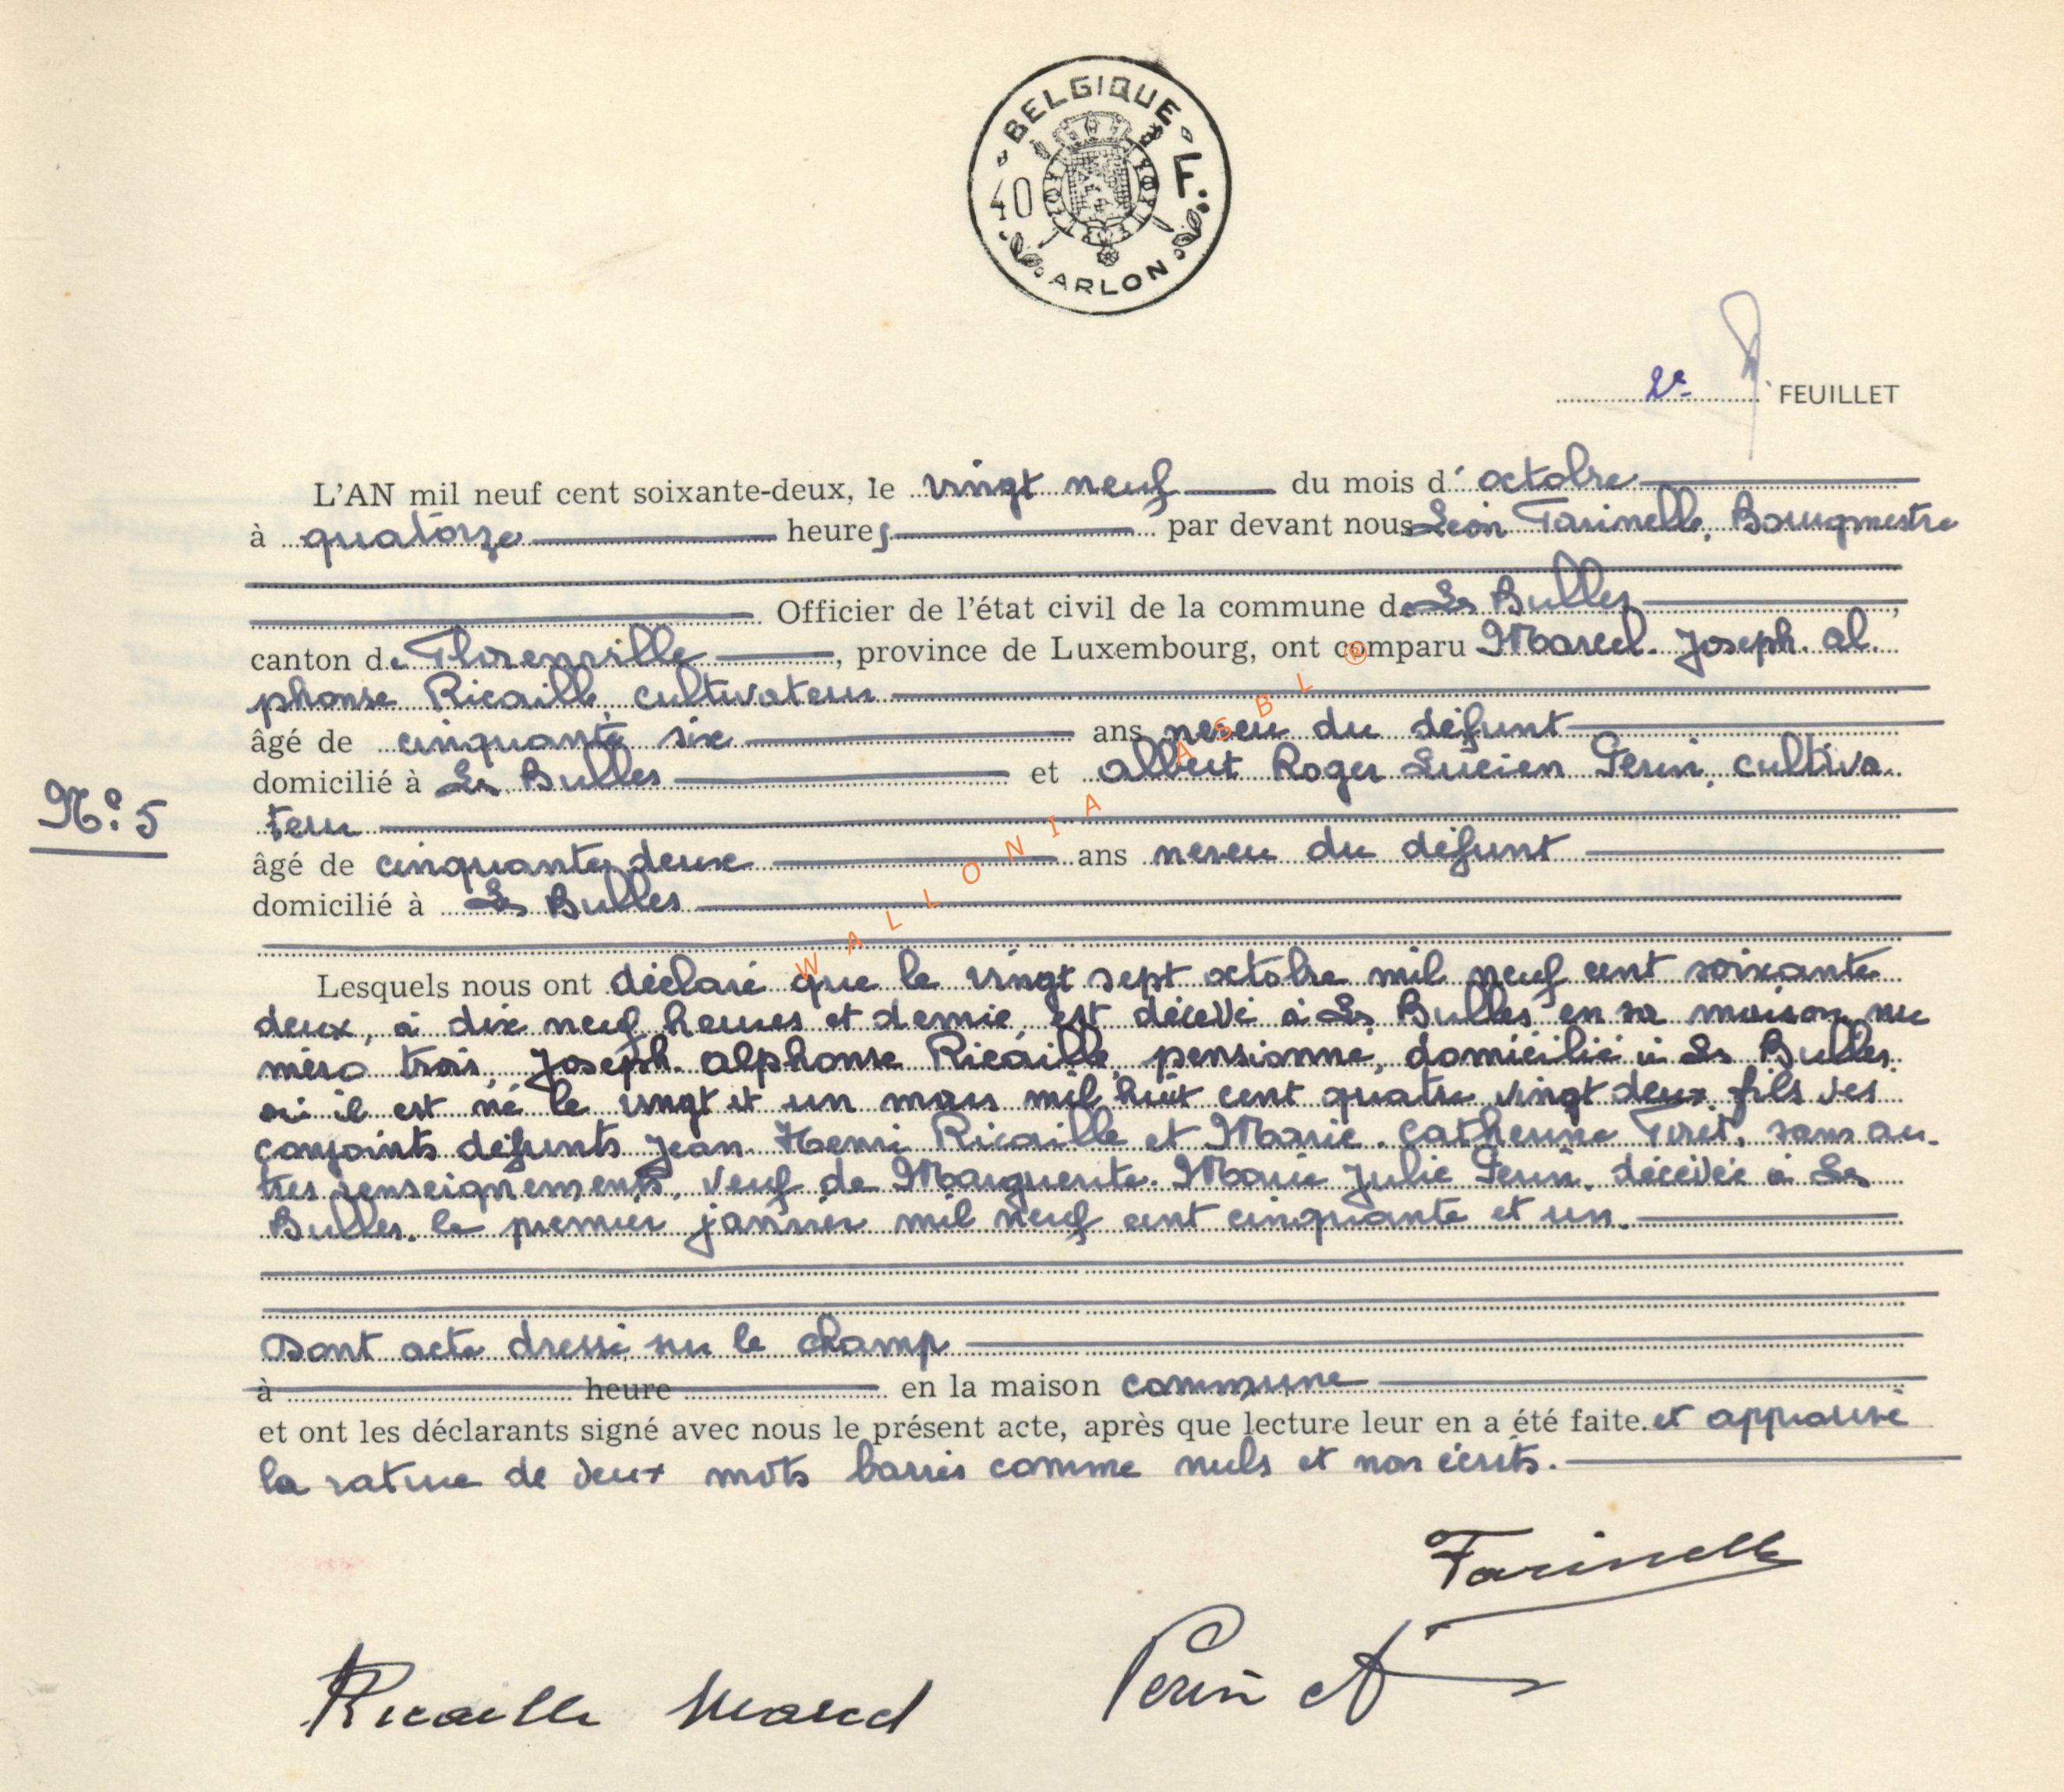 BELGIQUE
40 F.
ARLON
2e FEUILLET
L'AN mil neuf cent soixante-deux, le vingt neuf du mois d' octobre
à quatorze heures par devant nous Léon Farinelle, Bourgmestre
Officier de l'état civil de la commune de Les Bulles,
canton de Florenville, province de Luxembourg, ont comparu Marcel. Joseph. Al.
phonse Ricaille, cultivateur
âgé de cinquante six ans neveu du défunt
domicilié à Les Bulles et Albert Roger Lucien Perin, cultiva
teur
N° 5
âgé de cinquante deux ans neveu du défunt
domicilié à Les Bulles
Lesquels nous ont déclaré que le vingt sept octobre mil neuf cent soixante
deux, à dix neuf heures et demie, est décédé à Les Bulles en sa maison nu
méro trois, Joseph. Alphonse Ricaille, pensionné, domicilié à Les Bulles.
où il est né le vingt et un mars mil huit cent quatre vingt deux, fils des
conjoints défunts Jean Henri Ricaille et Marie. Catherine Piret, sans au.
tres renseignements, veuf de Marguerite. Marie Julie Perin, décédée à Les
Bulles, le premier janvier mil neuf cent cinquante et un.
Dont acte dressé sur le champ
à heure en la maison commune
et ont les déclarants signé avec nous le présent acte, après que lecture leur en a été faite. et approuvé
la rature de deux mots barrés comme nuls et non écrits.
Farinelle
Ricaille Marcel
Perin A
WALLONIA ASBL ®